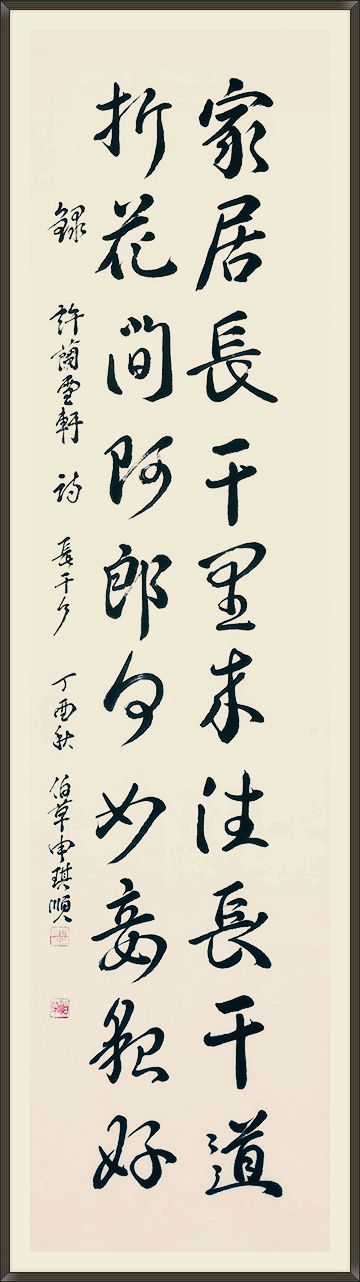 家居長干里来往長干道
折花問阿郎何如妾貌好
錄 許蘭雪軒 詩 長干行 丁酉秋 伯草申琪順